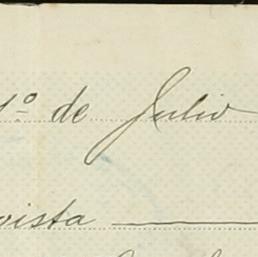 1º de Julio
vista